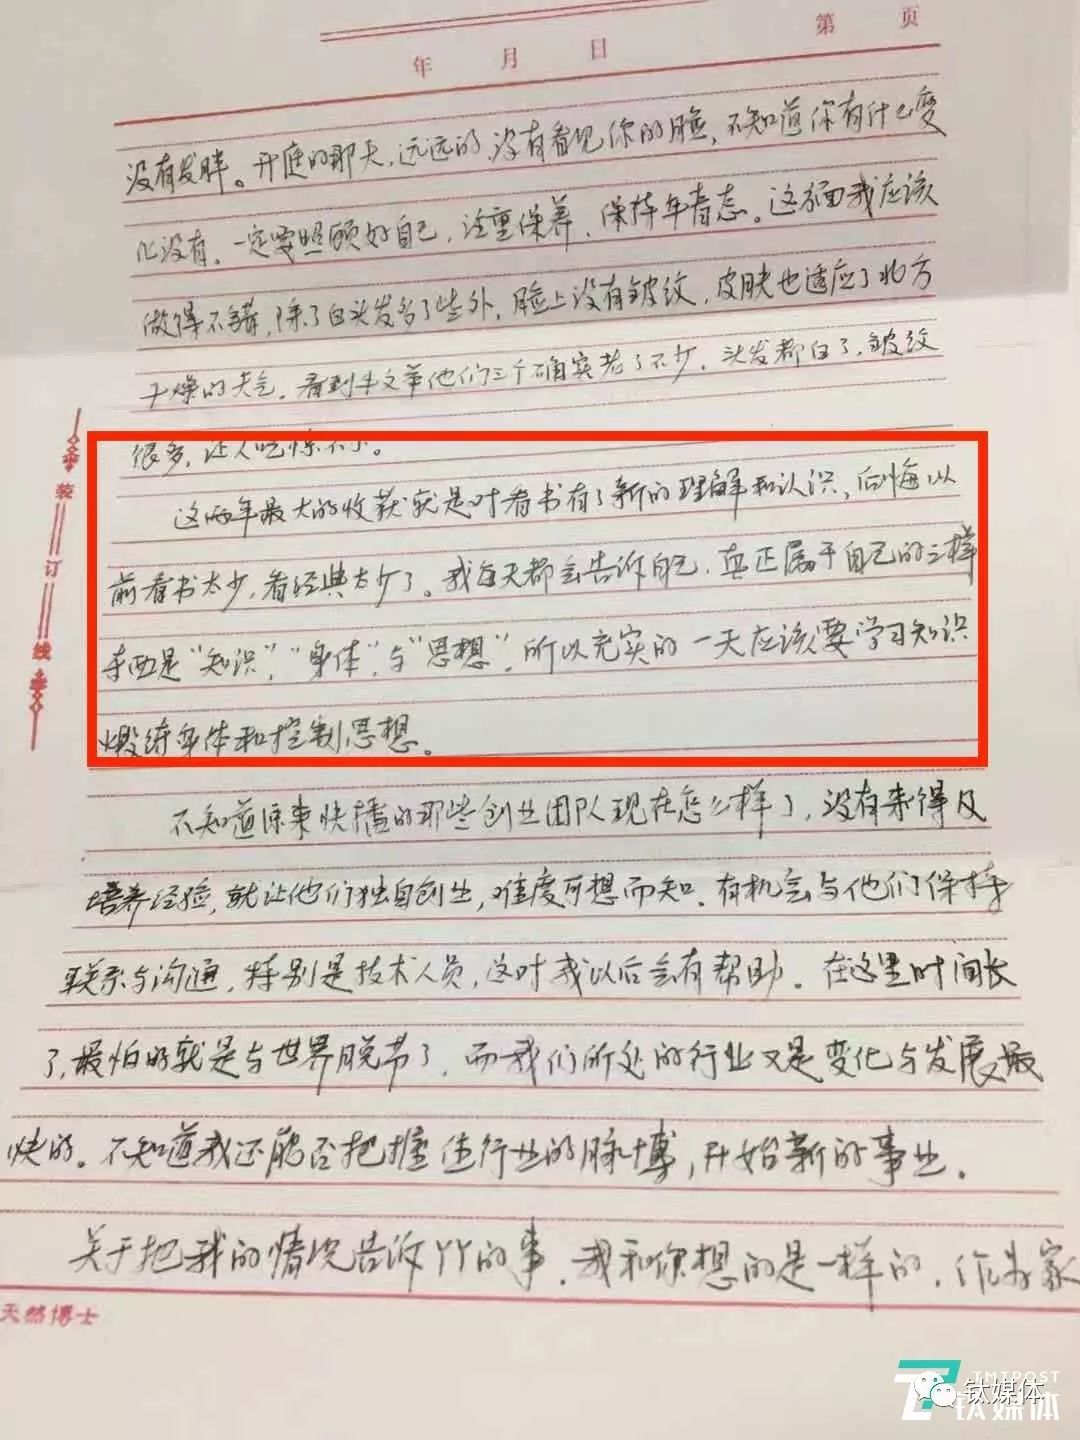 第 页
年 月 日
没有发胖。开庭的那天,远远的,没有看见你的脸,不知道你有什么变
化没有,一定要照顾好自己,注重保养,保持年青态。这方面我应该
做得不错,除了白头发多了些外,脸上没有皱纹,皮肤也适应了北方
干燥的天气。看到牛文举他们三个确实老了不少,头发都白了,皱纹
很多,让人吃惊不小。
这两年最大的收获就是对看书有了新的理解和认识,后悔以
前看书太少,看经典太少了。我每天都会告诉自己,真正属于自己的三样
东西是“知识”,“身体”与“思想”,所以充实的一天应该要学习知识
煅练身体和控制思想。
不知道原来快播的那些创业团队现在怎么样了,没有来得及
培养经验,就让他们独自创业,难度可想而知。有机会与他们保持
联系与沟通,特别是技术人员,这对我以后会有帮助。在这里时间长
了,最怕的就是与世界脱节了,而我们所处的行业又是变化与发展最
快的。不知道我还能否把握住行业的脉博,开始新的事业。
关于把我的情况告诉丫丫的事,我和你想的是一样的,作为家
装订线
天然博士
TMTPOST
钛媒体
钛媒体